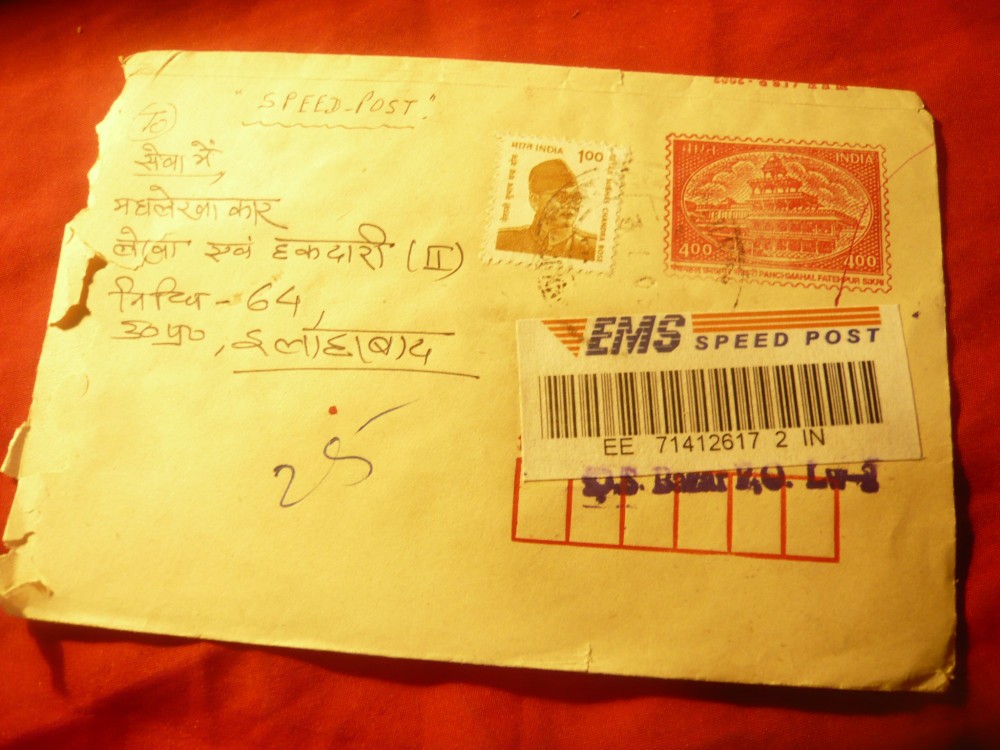 "SPEED-POST"
To
सेवा में
महालेखाकार
लेखा एवं हकदारी (II)
निधि - 64,
उ०प्र०, इलाहाबाद
भारत INDIA 1.00
SUBHAS CHANDRA BOSE
भारत INDIA
400 400
PANCHMAHAL FATEHPUR SIKRI
EMS SPEED POST
EE 71412617 2 IN
P.O. Lw-1